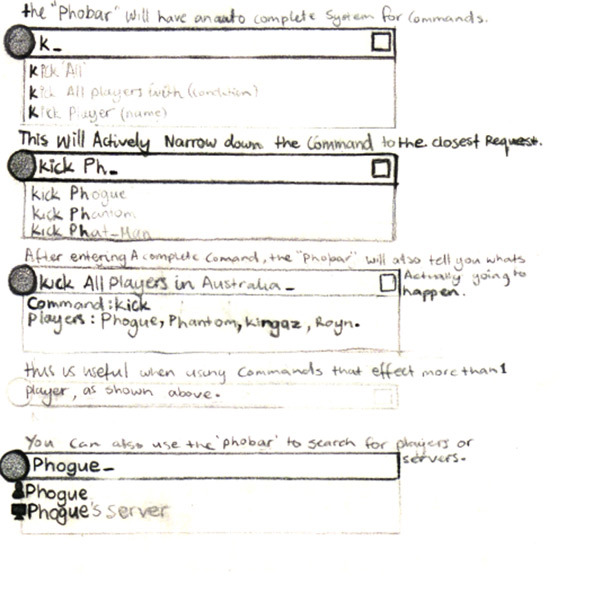 the "Phobar" will have an auto complete system for Commands.
k_
Kick 'All'
Kick All players with (condition)
Kick Player (name)
This Will Actively Narrow down the Command to the closest Request.
kick Ph_
kick Phogue
kick Phantom
kick Phat-Man
After entering A complete Comand, the "Phobar" will also tell you whats
Actually going to
happen.
kick All Players in Australia_
Command: kick
Players: Phogue, Phantom, kingaz, Royn.
this is useful when using Commands that effect more than 1
player, as shown above.
You can also use the 'phobar' to search for players or
servers.
Phogue_
Phogue
Phogue's Server